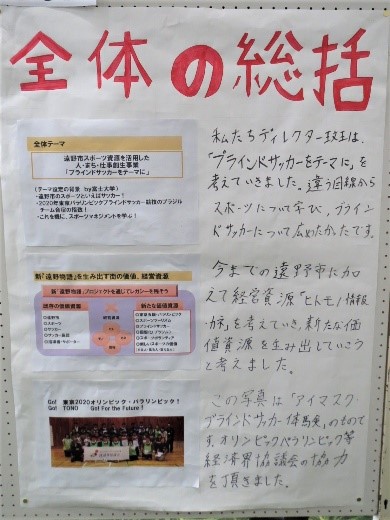 全体の総括
全体テーマ
遠野市スポーツ資源を活用した
人・まち・仕事創生事業
「ブラインドサッカーをテーマに」
(テーマ設定の背景 by富士大学)
・遠野市のスポーツといえばサッカー!
・2020年東京パラリンピックブラインドサッカー競技のブラジル
チーム合宿の招致!
・これを機に、スポーツマネジメントを学ぶ!
私たちディレクター班は、
「ブラインドサッカーをテーマに」を
考えていきました。違う目線から
スポーツについて学び、ブライン
ドサッカーについて広めたかったです。
新「遠野物語」を生み出す街の価値、経営資源
新「遠野物語」プロジェクトを通じてレガシーを残そう
既存の価値資源
経営資源
新たな価値資源
◎遠野市
◎スポーツ
◎サッカー
今までの遠野市に加
えて経営資源「ヒト・モノ・情報
・カネ」を考えていき、新たな価
値資源を生み出していこう
と考えました。
Go! 東京2020オリンピック・パラリンピック!
Go! TONO Go! For the Future!
この写真は「アイマスク・
ブラインドサッカー体験」のもので
す。オリンピックパラリンピック等
経済界協議会の協力
を頂きました。